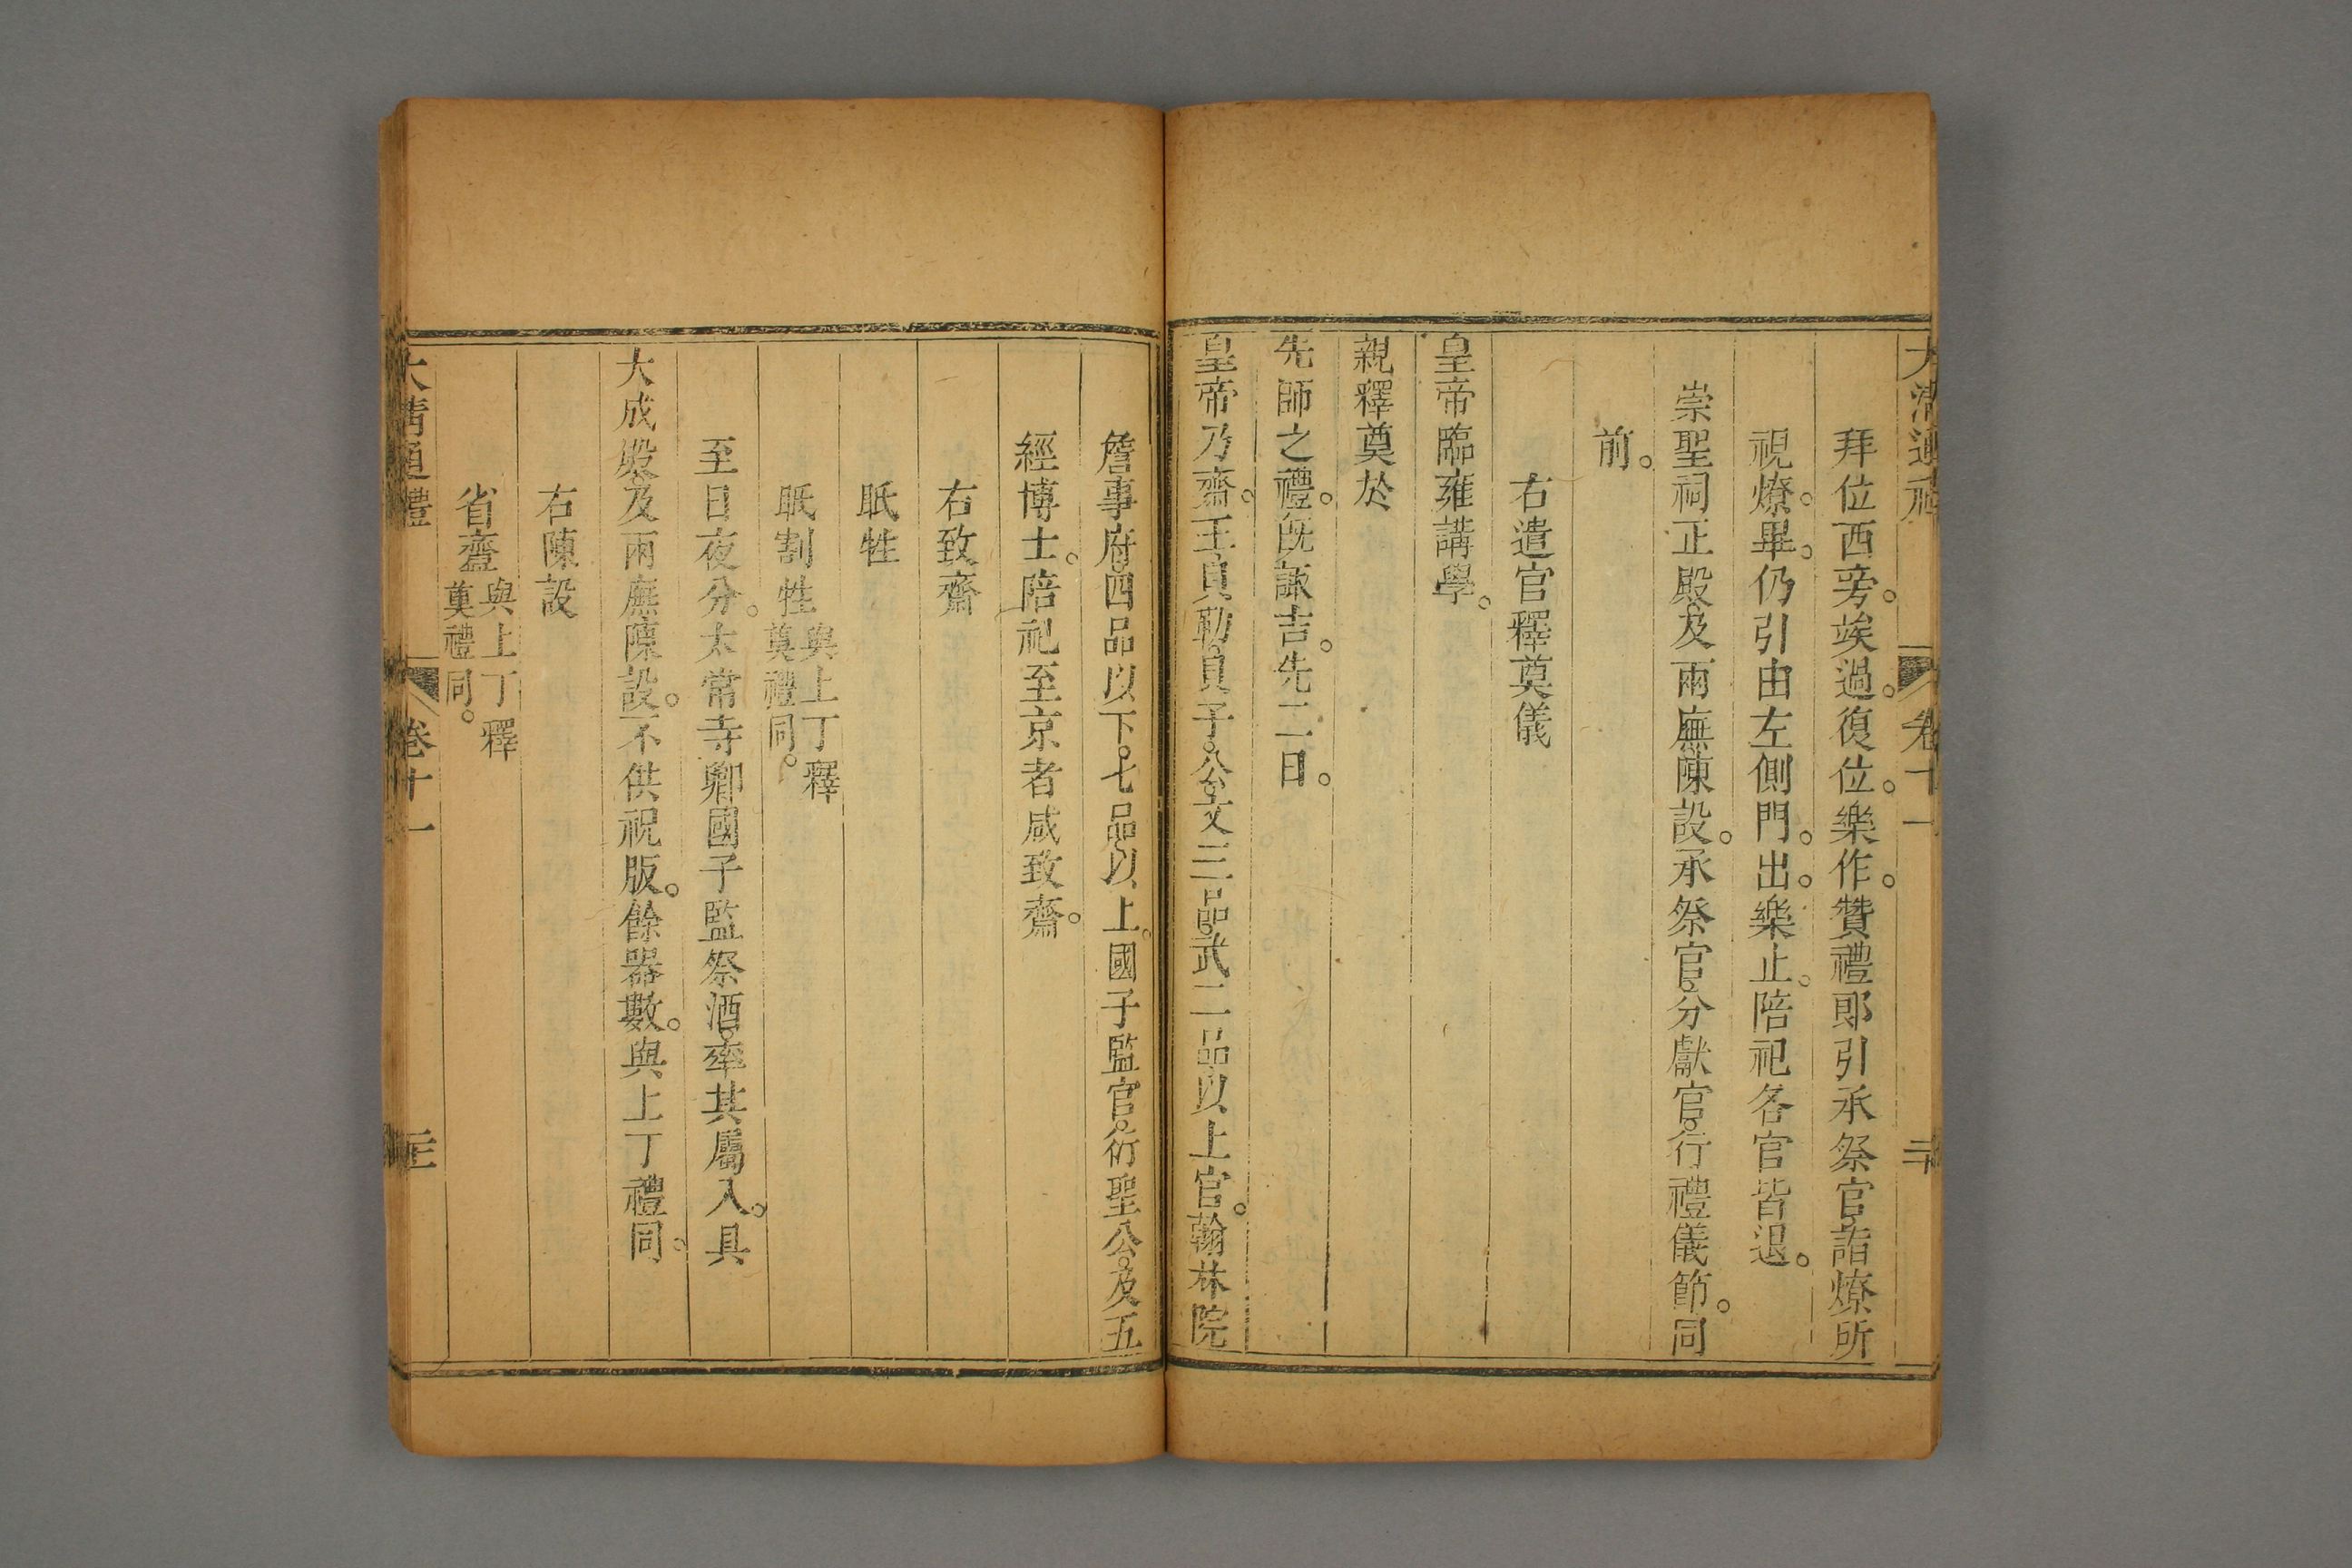 大清通禮 卷十一 二十
拜位西旁。竢過。復位。樂作。贊禮郎引承祭官詣燎所
視燎。畢。仍引由左側門。出。樂止。陪祀各官皆退。
崇聖祠正殿。及兩廡陳設。承祭官。分獻官。行禮儀節。同
前。
右遣官釋奠儀
皇帝臨雍講學。
親釋奠於
先師之禮。既諏吉。先二日。
皇帝乃齋。王。貝勒。貝子。公。文三品。武二品以上官。翰林院
詹事府。四品以下。七品。以上。國子監官。衍聖公。及五
經博士。陪祀至京者咸致齋。
右致齋
眂牲
眂割牲與上丁釋
奠禮同。
至日夜分。太常寺卿。國子監祭酒。率其屬入。具
大成殿。及兩廡陳設。不供祝版。餘器數。與上丁禮同。
右陳設
省齍與上丁釋
奠禮同。
大清通禮 卷十一